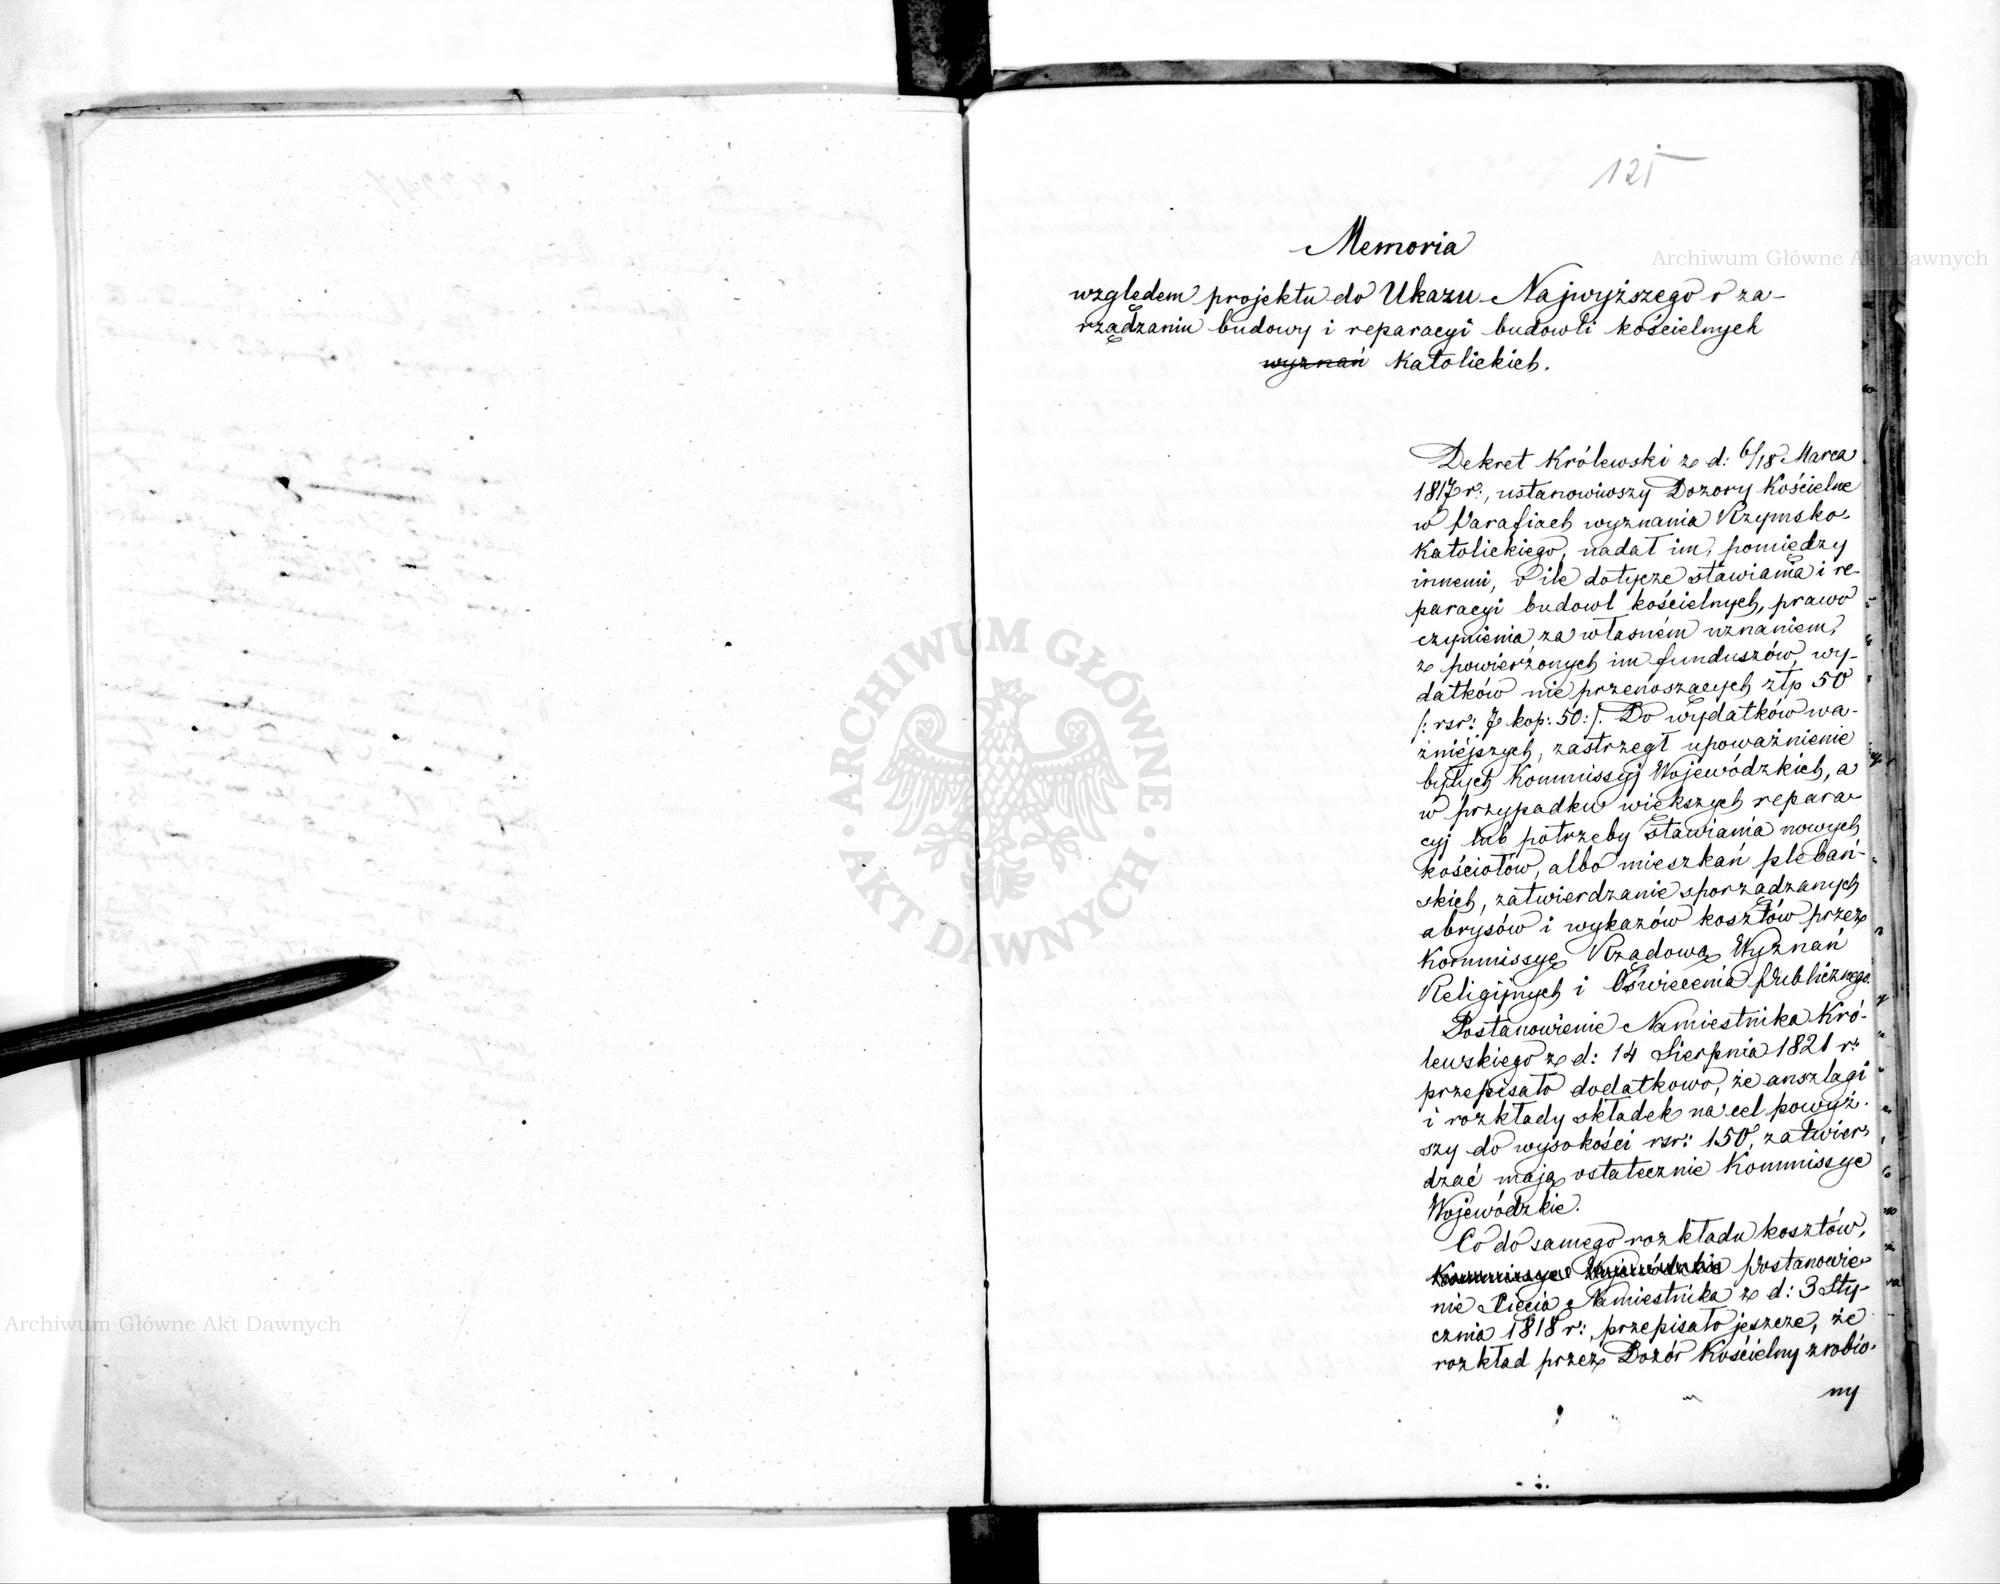 125
Memoria
względem projektu do Ukazu Najwyższego o za-
rządzaniu budowy i reparacyi budowli kościelnych
wyznań Katolickich.
Dekret Królewski z d: 6/18 Marca
1817 r:, ustanowiwszy Dozory Kościelne
w Parafiach wyznania Rzymsko-
Katolickiego, nadał im, pomiędzy
innemi, o ile dotycze stawiania i re-
paracyi budowl kościelnych, prawo
czynienia za własném uznaniem,
z powierzonych im funduszów, wy-
datków nie przenoszących złp 50
/: rsr: 7 kop: 50:/. Do wydatków wa-
żniejszych, zastrzegł upoważnienie
byłych Kommissyj Wojewódzkich, a
w przypadku większych repara-
cyj lub potrzeby stawiania nowych
kościołów, albo mieszkań plebań-
skich, zatwierdzanie sporządzanych
abrysów i wykazów kosztów przez
Kommissyę Rządową Wyznań
Religijnych i Oświecenia Publicznego.
Postanowienie Namiestnika Kró-
lewskiego z d: 14 Sierpnia 1821 r:
przepisało dodatkowo, że anszlagi
i rozkłady składek na cel powyż-
szy do wysokości rsr: 150, zatwier-
dzać mają ostatecznie Kommissye
Wojewódzkie.
Co do samego rozkładu kosztów,
Kommissye Wojewódzkie Postanowie-
nie Xięcia Namiestnika z d: 3 Sty-
cznia 1818 r: przepisało jeszcze, że
rozkład przez Dozór Kościelny zrobio-
ny
Archiwum Główne Akt Dawnych
ARCHIWUM GŁÓWNE
AKT DAWNYCH
Archiwum Główne Akt Dawnych